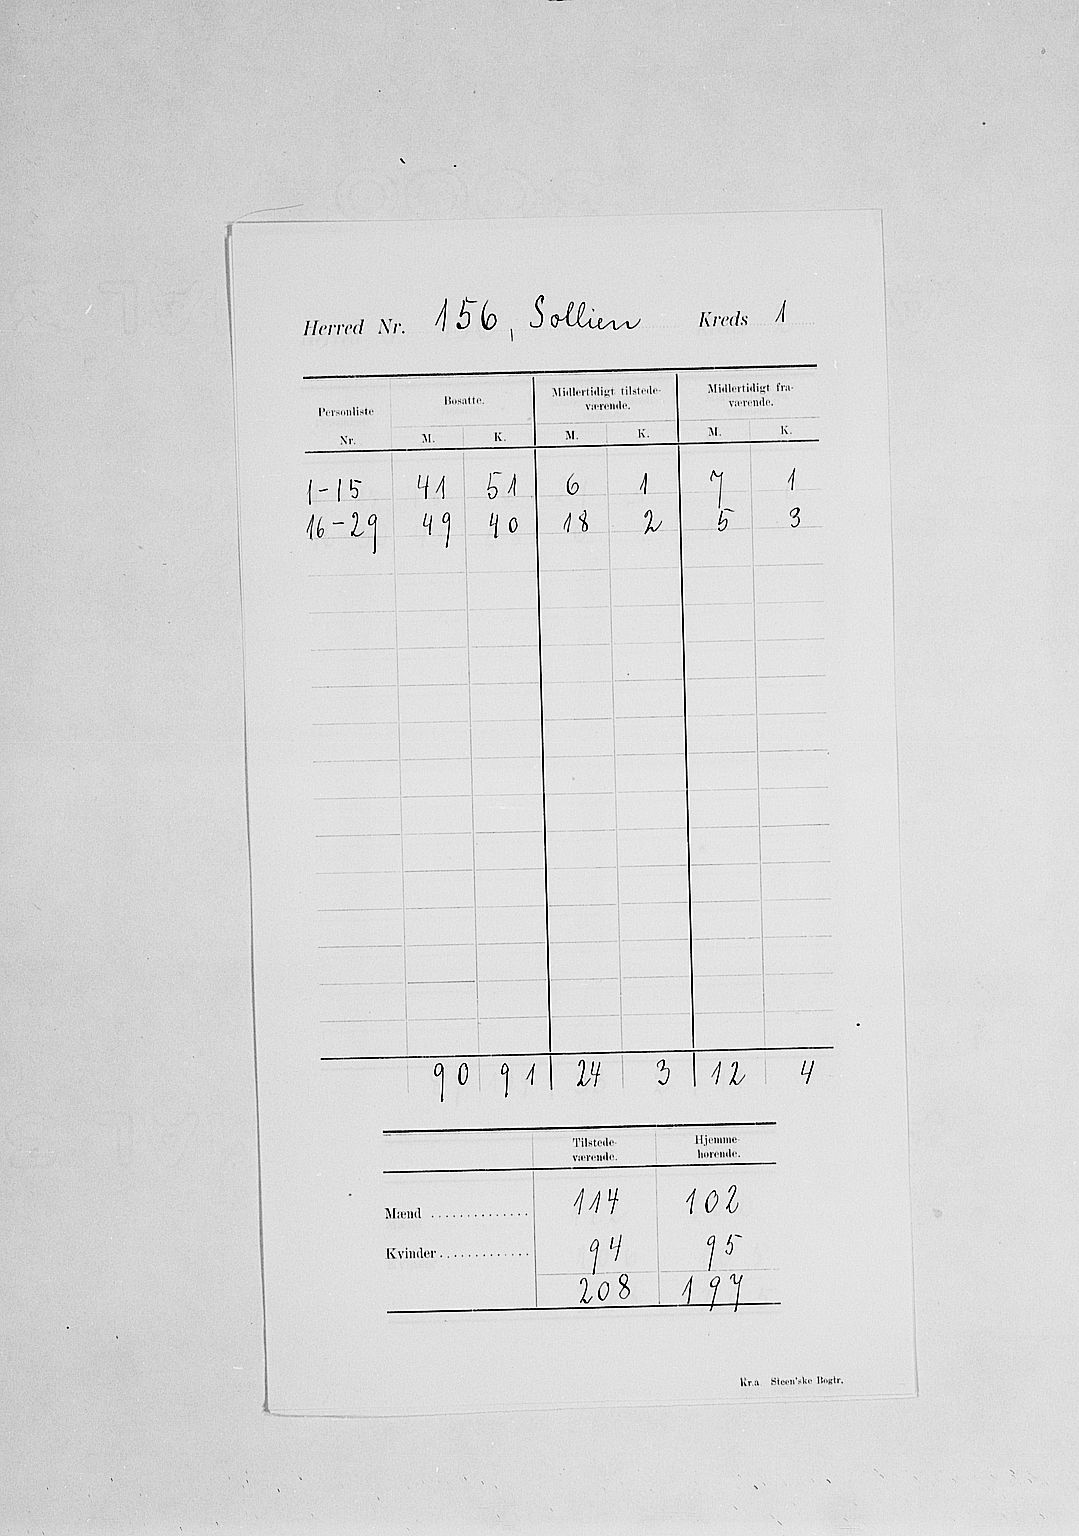 Herred Nr. 156, Sollien Kreds 1
Personliste Nr. Bosatte. Midlertidigt tilstede- værende. Midlertidigt fra- værende.
M. K. M. K. M. K.
1-15 41 51 6 1 7 1
16-29 49 40 18 2 5 3
90 91 24 3 12 4
Tilstede- værende. Hjemme- hørende.
Mænd .............. 114 102
Kvinder ............. 94 95
208 197
Kr.a Steen'ske Bogtr.